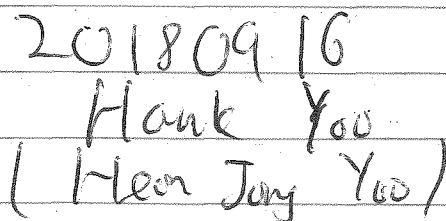 20180916
Hank Yoo
(Heon Jong Yoo)